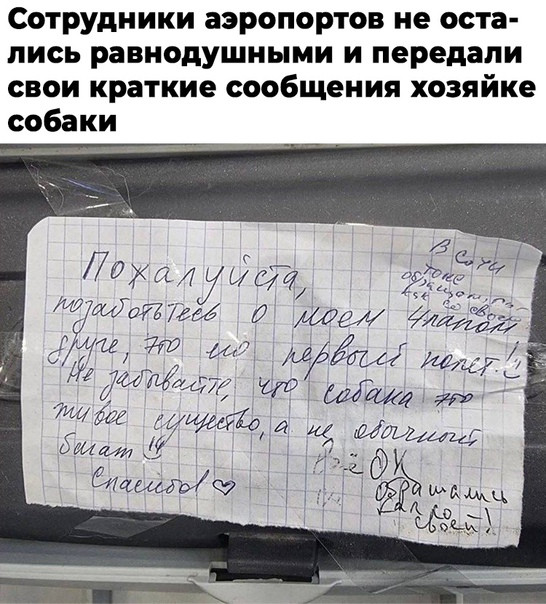 Сотрудники аэропортов не оста-
лись равнодушными и передали
свои краткие сообщения хозяйке
собаки
В Сочи
тоже
обращались
как со своей
Пожалуйста,
позаботьтесь о моем 4лапом
друге, это его первый полет!!
Не забывайте, что собака это
живое существо, а не обычный
багаж!!
Спасибо! ♡
Всё ОК
обращались
как со
своей!